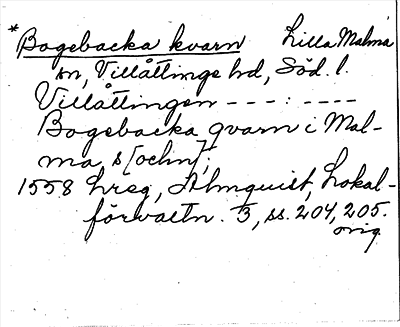 *Bogebacka kvarn Lilla Malma
sn, Villåttinge hd, Söd. l.
Villåttingen - - - : - - - -
Bogebacka qvarn i Mal-
ma s[ochn];
1558 hreg, Almquist, Lokal-
förvaltn. 3, ss. 204, 205.
orig